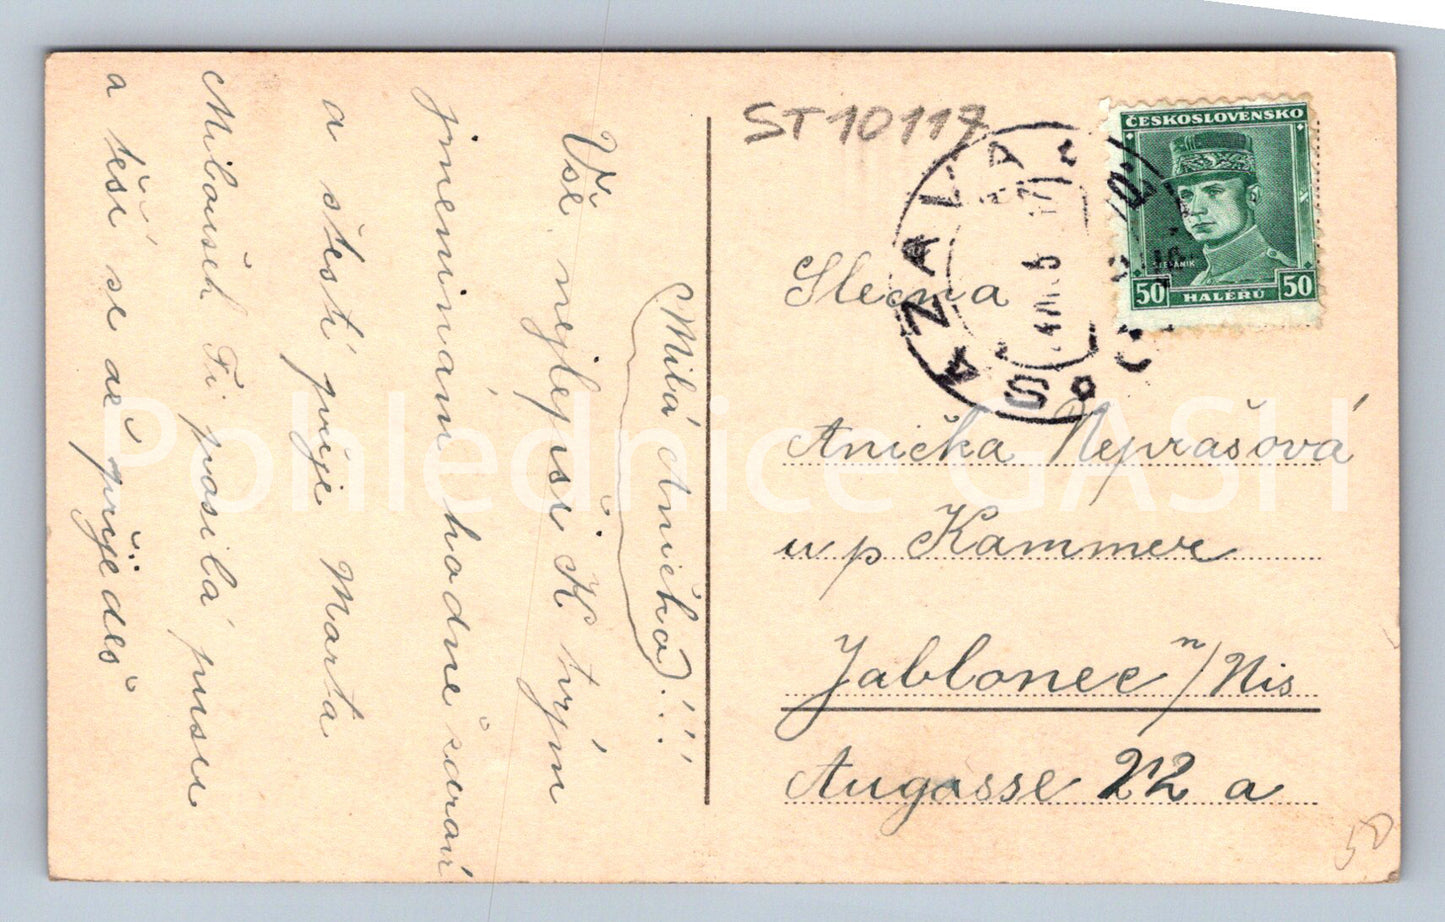 Milá Aničko!!!
Vše nejlepší K tvým
jmeninám hodně zdraví
a štestí přeje Marta
Miloušek Fr. posílá pusu
a těší se až přijedeš
ST10117
SAZAVA
ČESKOSLOVENSKO
ŠTEFÁNIK
50 HALÉRŮ 50
Slečna
Anička Neprašová
u p Kammer
Jablonec n/Nis
Augasse 22 a
50
Pohlednice GASH